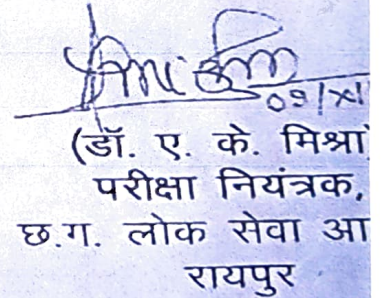 09/XI
(डॉ. ए. के. मिश्रा)
परीक्षा नियंत्रक,
छ.ग. लोक सेवा आ
रायपुर